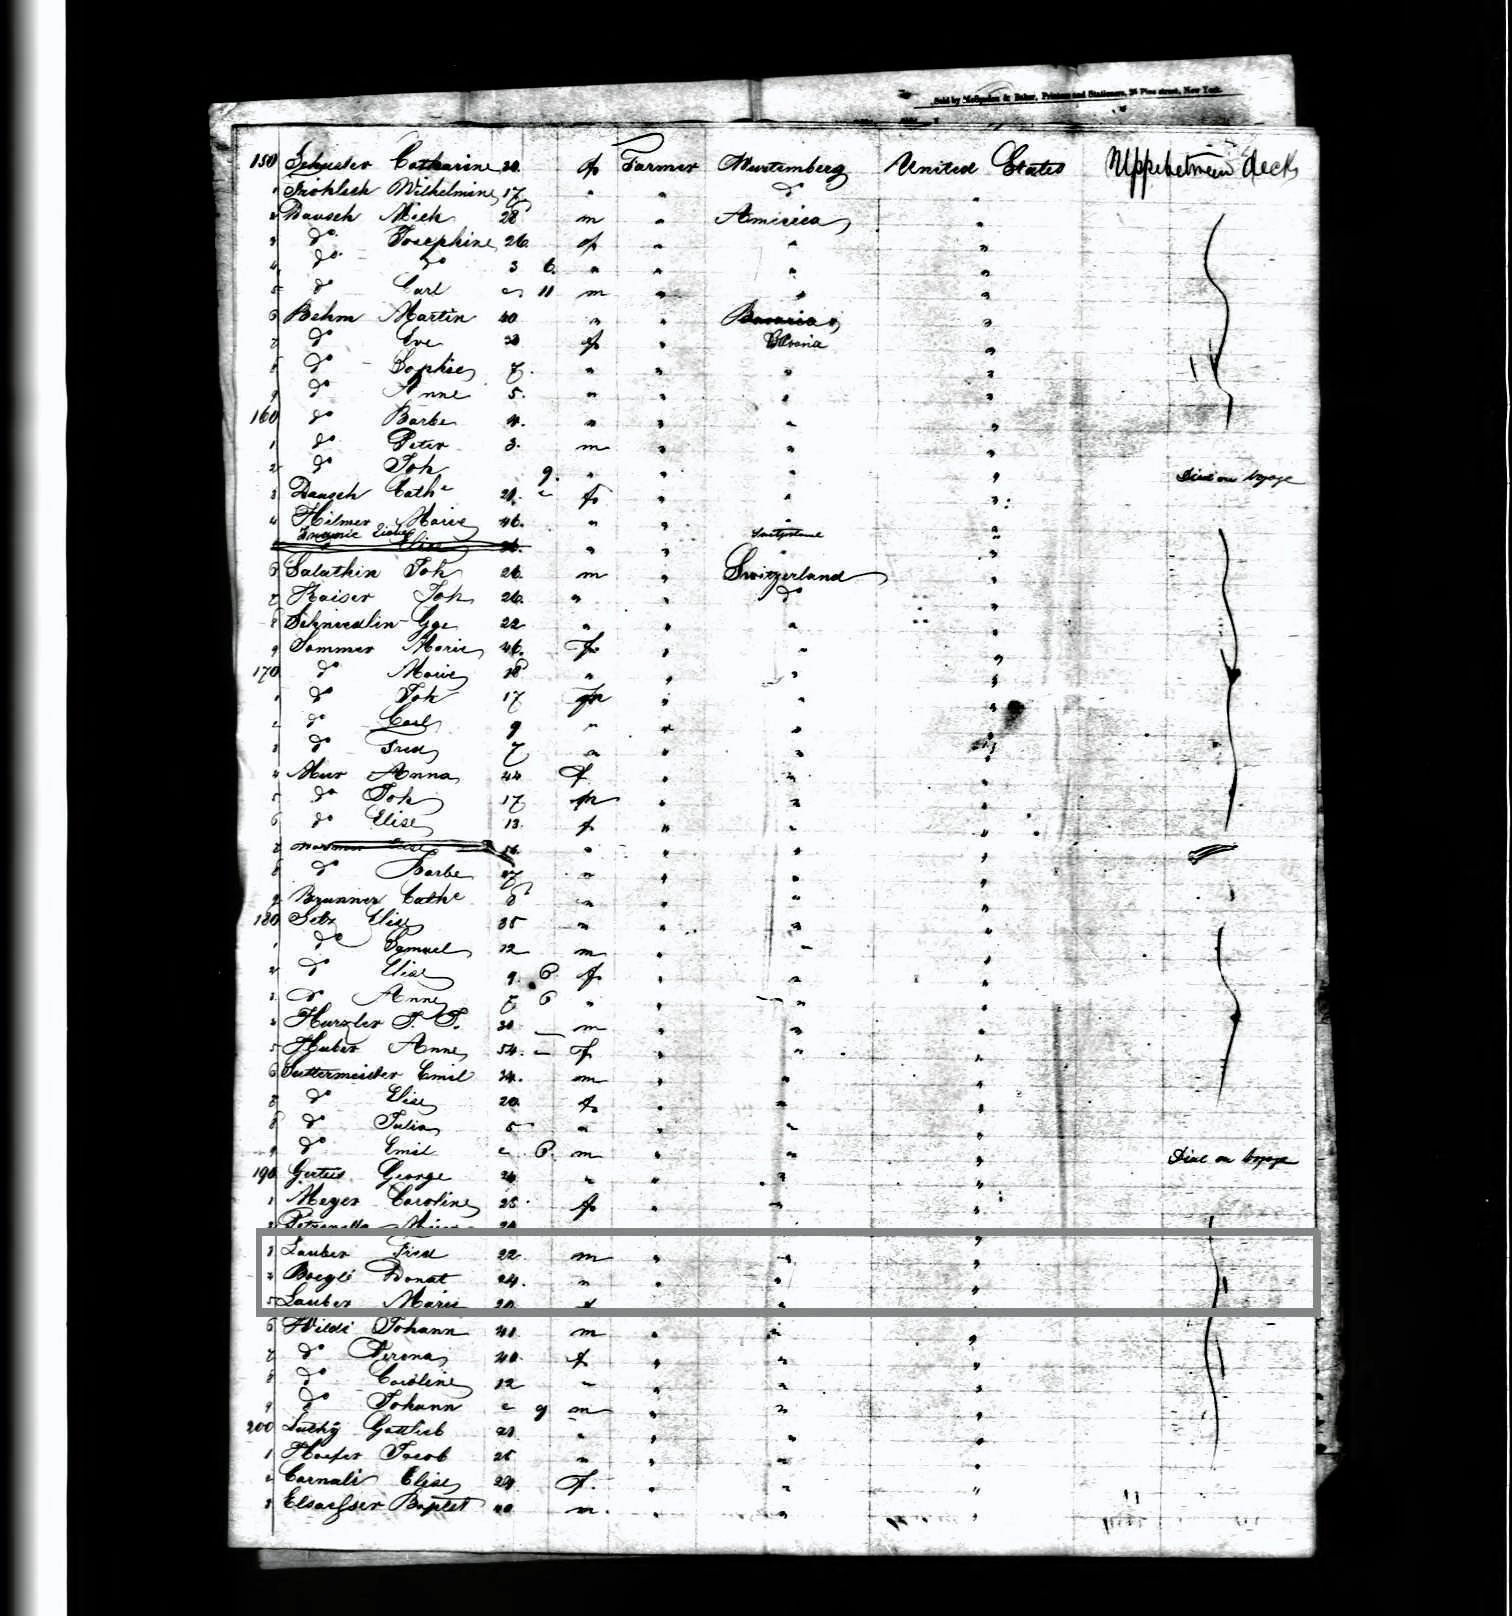 Sold by McSpedon & Baker, Printers and Stationers, 25 Pine street, New York.
150 Catharine f Farmer Wurtemberg United States deck
1 Wilhelmine 17 " " do "
2 Bausch Mich 28 m " America "
3 do Josephine 26 f " " "
4 do do 3 6 " " " "
5 do Carl 11 m " " "
6 Behm Martin 40 " " Bavaria "
7 do Eve f " "
8 do Sophie 7 " " " "
9 do Anne 5 " " " "
160 do Barbe 4 " " " "
1 do Peter 3 m " " "
2 do Joh 9 " " " " Died on Voyage
3 Cathe f " " "
4 Hilmer Marie 46 " " " "
6 Salathin Joh 26 m " Switzerland "
7 Kaiser Joh 26 " " do "
8 Schniedlin Gge 22 " " " "
9 Sommer Marie 46 f " " "
170 do Marie 18 " " " "
1 do Joh 17 m " " "
2 do Carl 9 " " " "
3 do Fred 7 " " " "
4 Anna 44 f " " "
5 do Joh 17 m " " "
6 do Elise 13 f " " "
7 " " " "
8 do Barbe " " " "
9 Brunner Cathe 8 " " " "
180 Setz Elise 35 " " " "
1 do Samuel 12 m " " "
2 do Elise 9 6 f " " "
3 do Anne 7 6 " " " "
4 Hurzler J. J. 30 m " " "
5 Huber Anne 54 f " " "
6 Suttermeister Emil 34 m " " "
7 do Elise 20 f " " "
8 do Julia 5 " " " "
9 do Emil 6 m " " " Died on Voyage
190 George 24 " " " "
1 Meyer Caroline 25 f " " "
2 Petronella
3 Lauber Fred 22 m " " "
4 Boegli Donat 24 " " " "
5 Lauber Marie 20 f " "
6 Wildi Johann 41 m " " "
7 do Verena 40 f " " "
8 do Caroline 12 " " " "
9 do Johann 9 m " " "
200 Luthy Gottlieb " " " "
1 Hoefer Jacob 25 " " " "
2 Elise 24 f " " "
3 Elsaesser Baptist 40 m " "